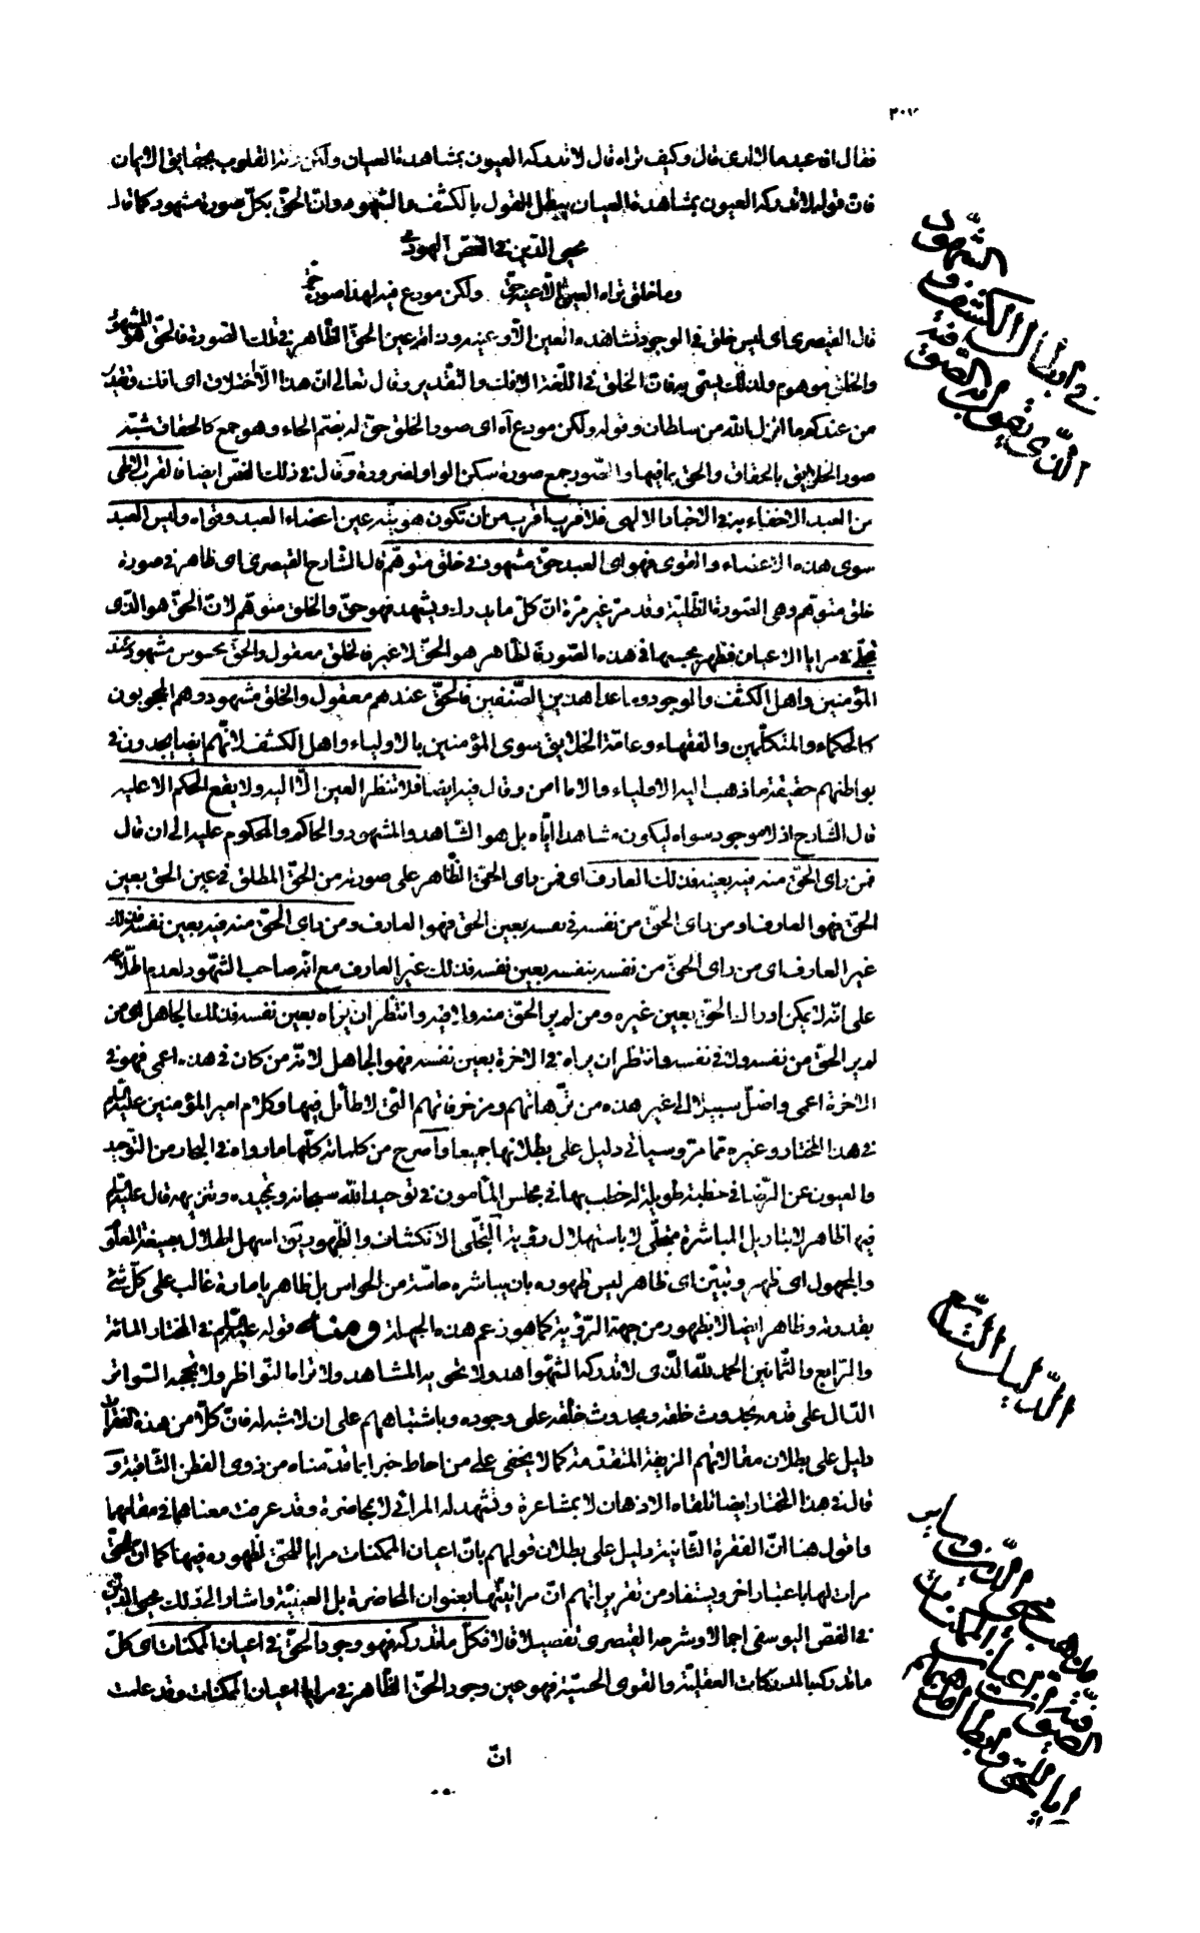 فقال افاعبد مالا ارى قال وكيف تراه قال لا تدركه العيون بمشاهدة العيان ولكن تدركه القلوب بحقايق الايمان
فان قوله لا تدركه العيون بمشاهدة العيان يبطل القول بالكشف والشهود وان الحقّ بكلّ صورة مشهود كما قال
محيى الدّين فى الفصّ الهودىّ
وما خلق تراه العين الّا عينه حقّ ولكن مودع فيه لهذا صوره حقّ
قال القيصرى اى ليس خلق فى الوجود تشاهده العين الّا وعينه وذاته عين الحقّ الظّاهر فى تلك الصّورة فالحقّ هو المشهود
والخلق موهوم ولذلك يسمّى به فانّ الخلق فى اللّغة الافك والتقدير وقال تعالى ان هذا الّا اختلاق اى افك وتقدير
من عندكم ما انزل الله من سلطان وقوله ولكن مودع آه اى صور الخلق حقّ له بضمّ الحاء وهو جمع كالحقاق شبّه
صور الخلايق بالحقاق والحق بما فيها والصّور جمع صورة سكن الواو لضرورة وقال فى ذلك الفصّ ايضا فالقرب الالهى
من العبد لا خفاء به فى الاخبار الالهى فلا قرب اقرب من ان تكون هويّته عين اعضاء العبد وقواه وليس العبد
سوى هذه الاعضاء والقوى فهو اى العبد حقّ مشهود فى خلق متوهّم قال الشارح القيصرى اى ظاهر فى صورة
خلق متوهّم وهى الصّورة الظّلّية وقد مرّ غير مرّة انّ كلّ ما يدرك ويشهد فهو حقّ والخلق متوهّم لانّ الحقّ هو الّذى
تجلّى فى مرايا الاعيان فظهر بحسبها فى هذه الصّورة فالظاهر هو الحقّ لا غير فالخلق معقول والحقّ محسوس مشهود عند
المؤمنين واهل الكشف والوجود وما عدا هذين الصّنفين فالحقّ عندهم معقول والخلق مشهود وهم المحجوبون
كالحكماء والمتكلّمين والفقهاء وعامّة الخلايق سوى المؤمنين بالاولياء واهل الكشف لانّهم ايضا يجدون فى
بواطنهم حقيقة ما ذهب اليه الاولياء والا ما امن وقال فيه ايضا فلا تنظر العين الّا اليه ولا يقع الحكم الا عليه
قال الشارح اذ لا موجود سواه ليكون شاهدا ايّاه بل هو الشاهد والمشهود والحاكم والمحكوم عليه الى ان قال
فمن راى الحقّ منه فيه بعينه فذلك العارف اى فمن راى الحقّ الظّاهر على صورته من الحقّ المطلق فى عين الحق بعين
الحقّ فهو العارف ومن راى الحقّ من نفسه فى نفسه بعين الحق فهو العارف ومن راى الحقّ منه فيه بعين نفسه فذلك
غير العارف اى من راى الحقّ من نفسه بنفسه بعين نفسه فذلك غير العارف مع انّه صاحب الشّهود لعدم اطّلاعه
على انّه لا يمكن ادراك الحقّ بعين غيره ومن لم ير الحقّ منه ولا فيه وانتظر ان يراه بعين نفسه فذلك الجاهل اى من
لم ير الحقّ من نفسه ولا فى نفسه وانتظر ان يراه فى الاخرة بعين نفسه فهو الجاهل لانّه من كان فى هذه اعمى فهو فى
الاخرة اعمى واضلّ سبيلا الى غير هذه من ترّهاتهم ومزخرفاتهم الّتى لا طائل فيها وكلام امير المؤمنين عليه السّلم
فى هذا المختار وغيره ممّا مرّ وسيأتى دليل على بطلانها جميعا واصرح من كلماته كلّها ما رواه فى البحار من التّوحيد
والعيون عن الرّضا فى خطبة طويلة له خطب بها فى مجلس المأمون فى توحيد الله سبحانه وتمجيده وتنزيهه قال عليه السّلم
فيها ظاهر لا بتاويل المباشرة متجلّى لا باستهلال رؤية التّجلّى الانكشاف والظّهور يق استهل الهلال بصيغة المعلوم
والمجهول اى ظهر وتبيّن اى ظاهر ليس ظهوره بان يباشره حاسّة من الحواس بل ظاهر بامارة غالب على كلّ شئ
بقدرته وظاهر ايضا لا بظهور من جهة الرّؤية كما هو زعم هذه الجهلة ومنها قوله عليه السّلم فى المختار المائة
والرّابع والثّمانين الحمد للّه الّذى لا تدركه الشّواهد ولا تحويه المشاهد ولا تراه النّواظر ولا تحجبه السّواتر
الدّال على قدمه بحدوث خلقه وبحدوث خلقه على وجوده وباشتباههم على ان لا شبه له فانّ كلّا من هذه الفقرات
دليل على بطلان مقالاتهم المزيفة المتقدّمة كما لا يخفى على من احاط خبرا بما قدّمناه من ذوى الفطن الثّاقبة و
قال فى هذا المختار ايضا تلقاه الاذهان لا بمشاعرة وتشهد له المرائى لا بمحاضرة وقد عرفت معناهما فى مقامهما
واقول هنا انّ الفقرة الثّانية دليل على بطلان قولهم بانّ اعيان الممكنات مرايا للحقّ لظهوره فيها كما انّ الحقّ
مرات لها باعتبار اخر ويستفاد من تقريراتهم انّ مراتيّتها بعنوان المحاضرة بل العينيّة واشار الى ذلك محيى الدّين
فى الفصّ اليوسفى اجمالا وشرحه القيصرى تفصيلا قالا فكلّ ما تدركه فهو وجود الحقّ فى اعيان الممكنات اى كلّ
ما تدركه بالمدركات العقليّة والقوى الحسيّة فهو عين وجود الحقّ الظّاهر فى مرايا اعيان الممكنات وقد علمت
انّ
فى ابطال الكشف و الشهود
الّذى يقول به الصّوفيّة
الدّليل التّاسع
مذهب محيى الدّين وساير